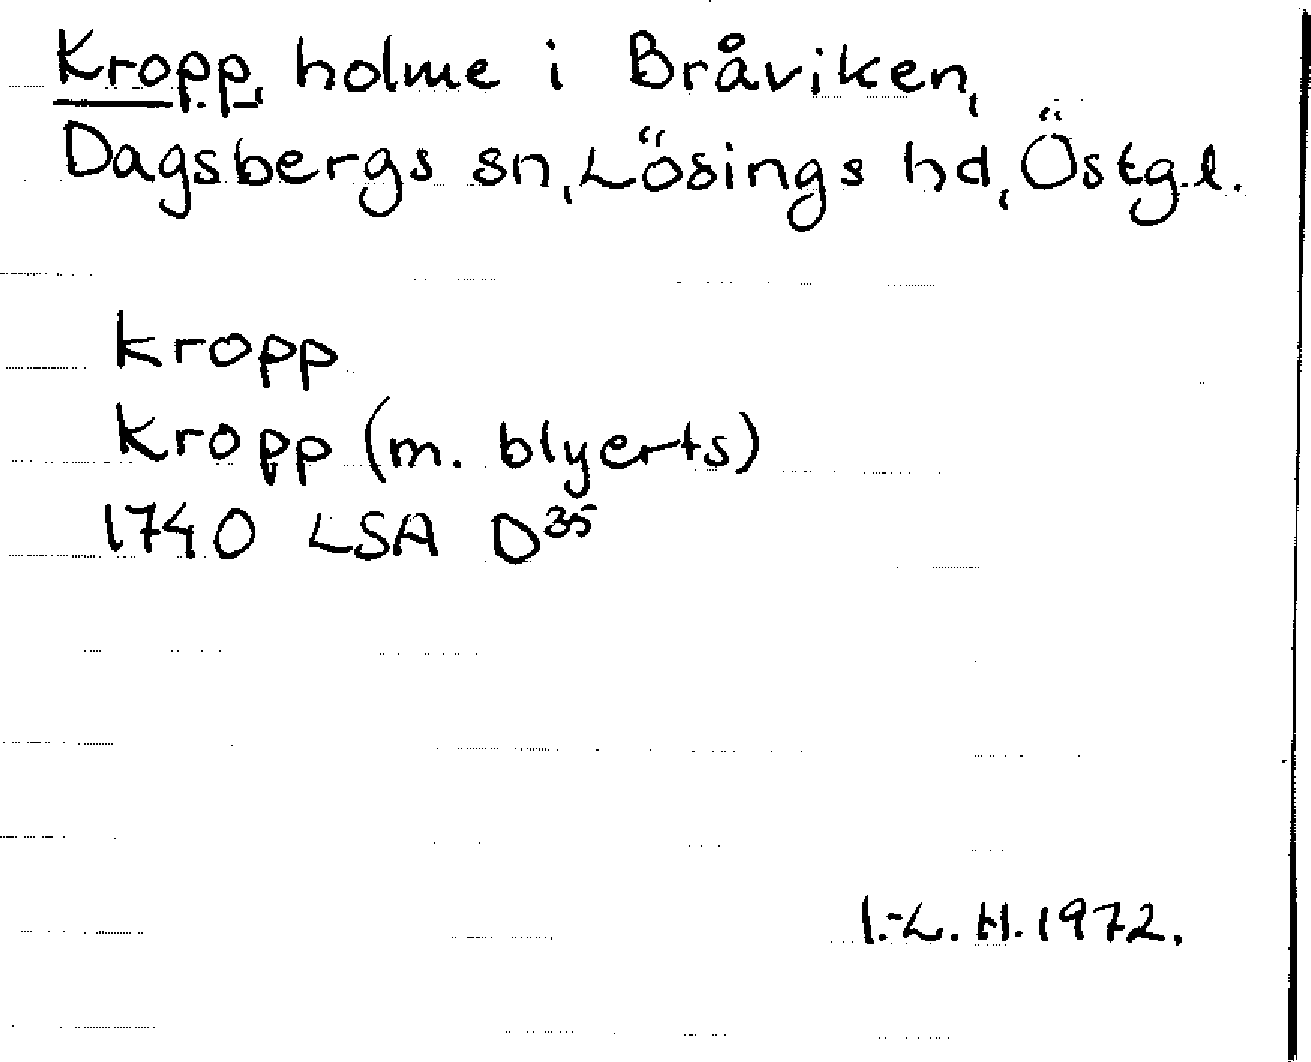 Kropp, holme i Bråviken,
Dagsbergs sn, Lösings hd, Östg.l.
kropp
kropp (m. blyerts)
1740 LSA D³⁵
I.-L. H. 1972.